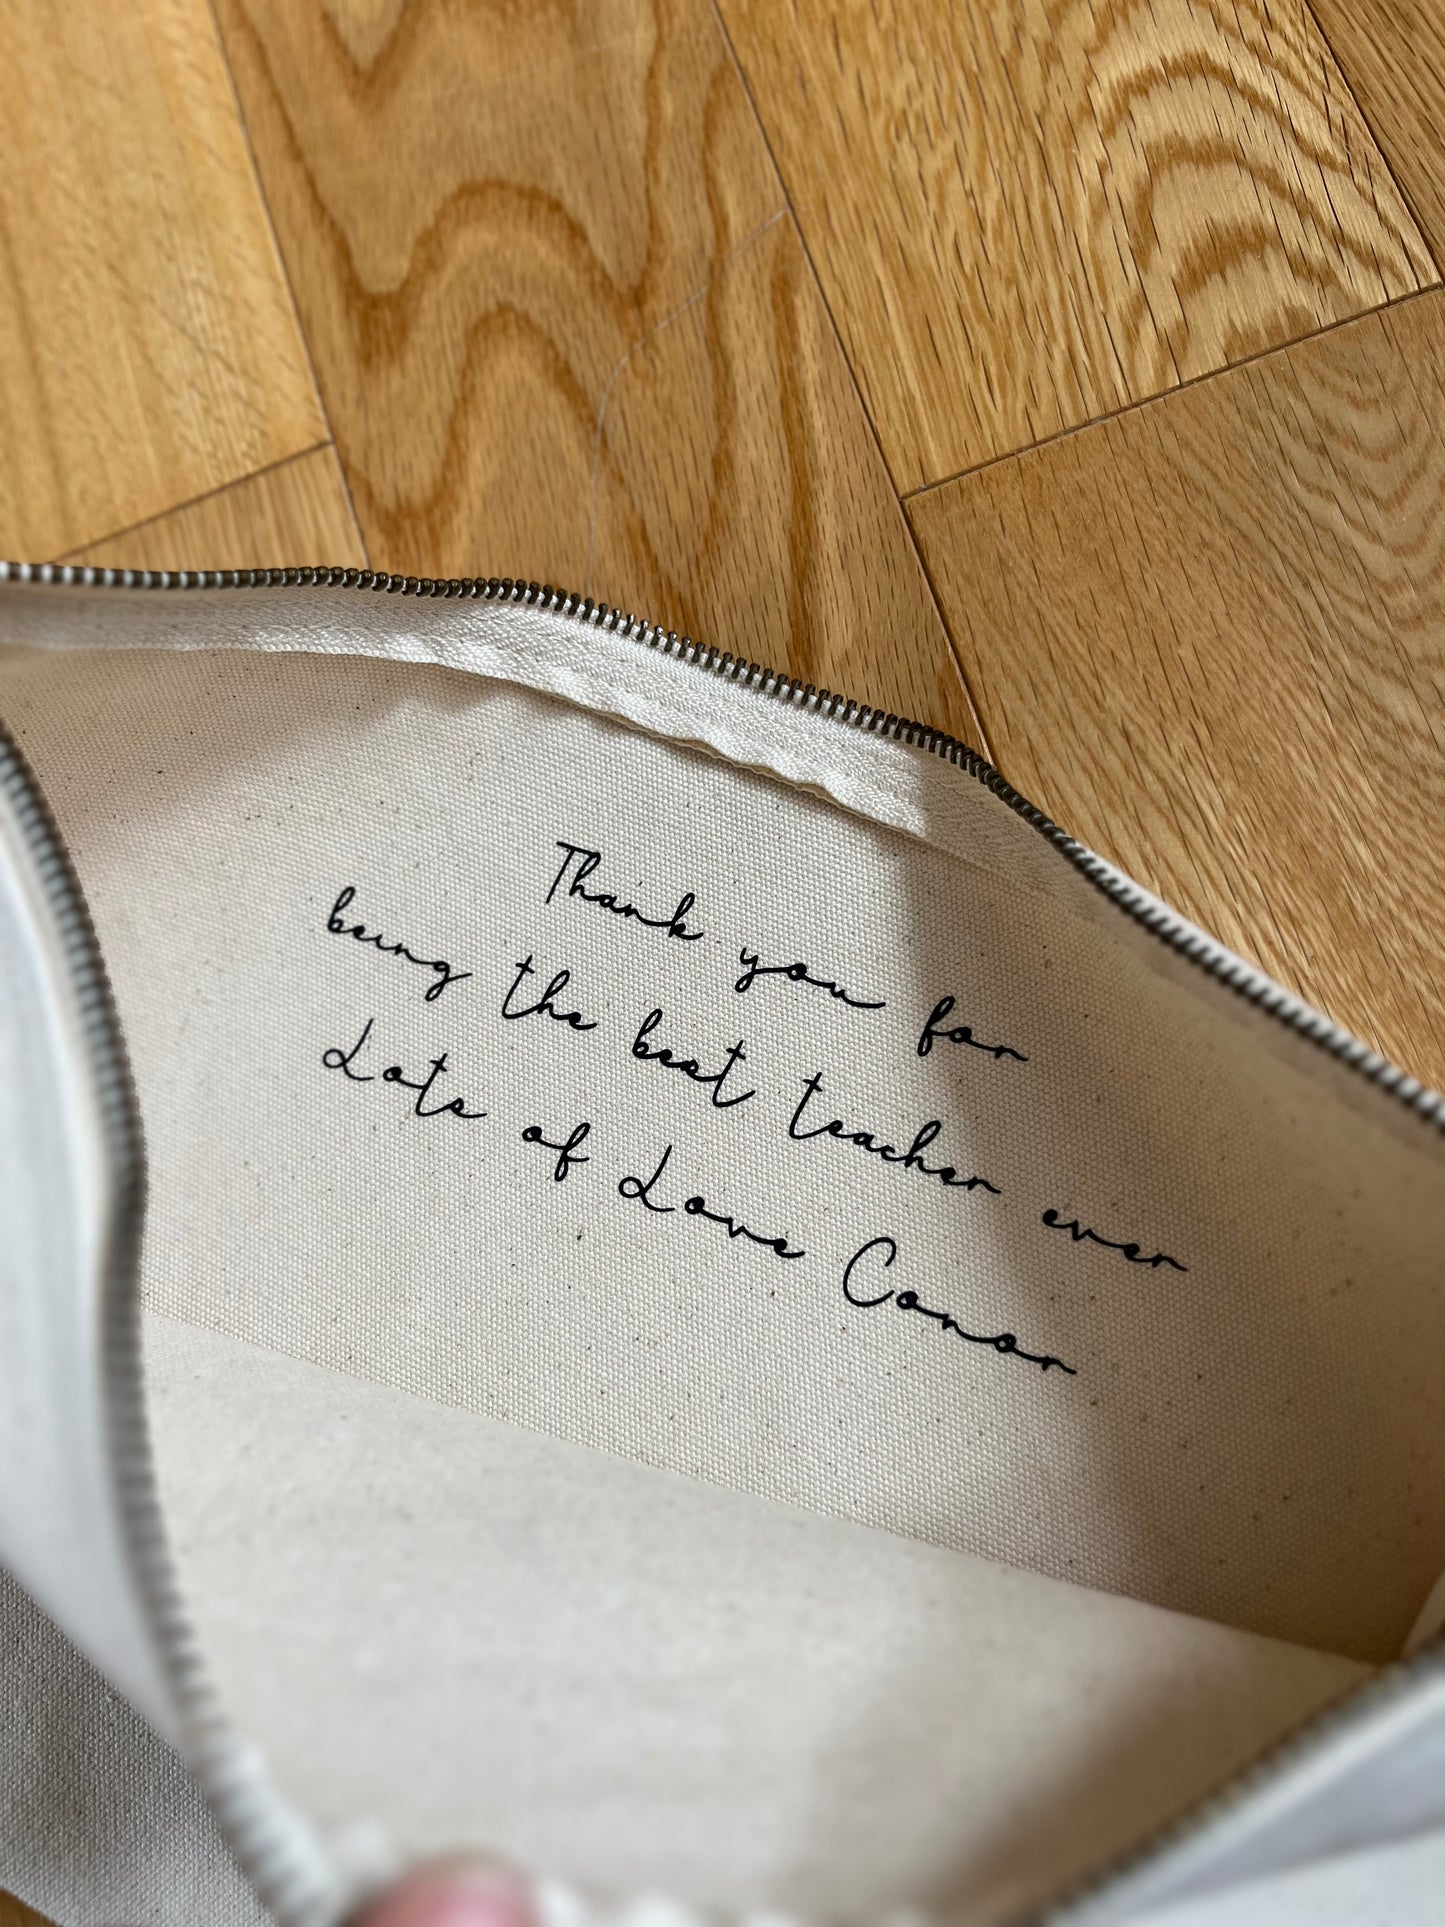 Thank you for
being the best teacher ever
Lots of Love Conor